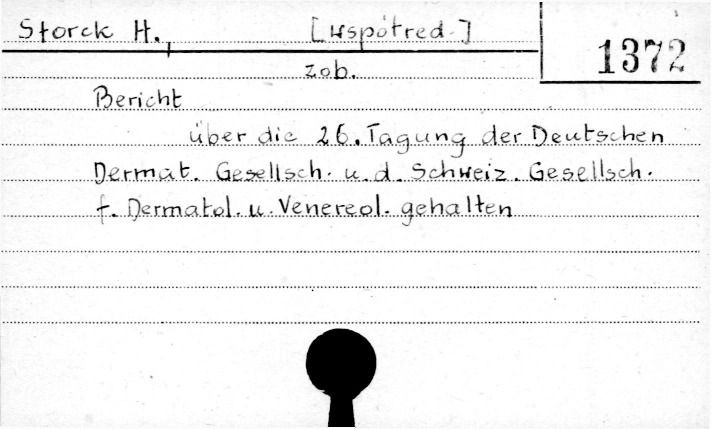 Storck H. [współred.]
1372
zob.
Bericht
über die 26. Tagung der Deutschen
Dermat. Gesellsch. u. d. Schweiz. Gesellsch.
f. Dermatol. u. Venereol. gehalten